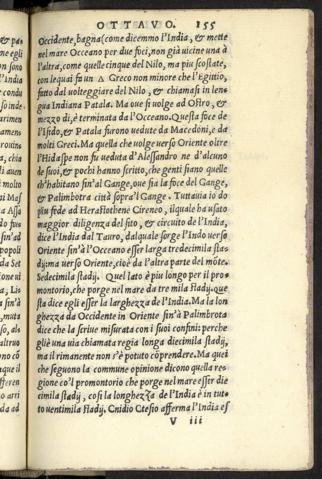 OTTAVO. 155
Occidente, bagna (come dicemmo l'India, & mette
nel mare Occeano per due foci, non già uicine una à
l'altra, come quelle cinque del Nilo, ma piu scostate,
con le quai fa un Δ Greco non minore che l'Egittio,
fatto dal uolteggiare del Nilo, & chiamasi in len=
gua Indiana Patala. Ma oue si uolge ad Ostro, &
mezzo dì, è terminata da l'Occeano. Questa foce de
l'Isido, & Patala furono uedute da Macedoni, e da
molti Greci. Ma quella che uolge uerso Oriente oltre
l'Hidaspe non fu ueduta d'Alessandro ne d'alcuno
de suoi, & pochi hanno scritto, che genti siano quelle
ch'habitano fin'al Gange, oue sia la foce del Gange,
& Palimbotra città sopra'l Gange. Tuttauia io do
piu fede ad Herastothene Cireneo, il quale ha usato
maggior diligenza del sito, & circuito de l'India,
dice l'India dal Tauro, dal quale sorge l'Indo uerso
Oriente fin'à l'Occeano esser larga tredecimila sta=
dij: ma uerso Oriente, cioè da l'altra parte del mõte.
Sedecimila stadij. Quel lato è piu longo per il pro=
montorio, che porge nel mare da tre mila stadij. que
sta dice egli esser la larghezza de l'India. Ma la lon
ghezza da Occidente in Oriente fin'à Palimbrota
dice che la scriue misurata con i suoi confini: perche
gliè una uia chiamata regia longa diecimila stadij,
ma il rimanente non s'è potuto cõprendere. Ma quei
che seguono la commune opinione dicono quella re=
gione co'l promontorio che porge nel mare essir die
cimila stadij, cosi la longhezza de l'India è in tut=
to uentimila stadij. Cnidio Ctesio afferma l'India es
V iii